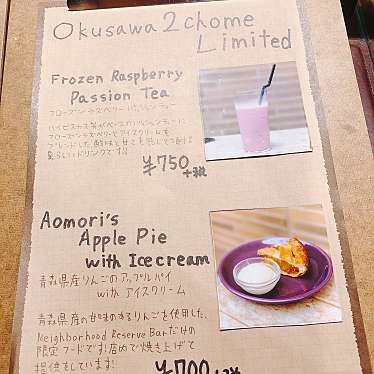 Okusawa 2 chome
Limited
Frozen Raspberry
Passion Tea
フローズンラズベリー
ハイビスカス等が
フローズンラズベリーとアイスクリームを
ブレンドした酸味と甘
夏らしいドリンクです!!
¥750+税
Aomori's
Apple Pie
with Icecream
青森県産りんごのアップルパイ
with アイスクリーム
青森県産の甘味のあるりんごを使用した、
Neighborhood Reserve Barだけの
限定フードです!店内で焼き上げて
提供をしています!
¥700+税